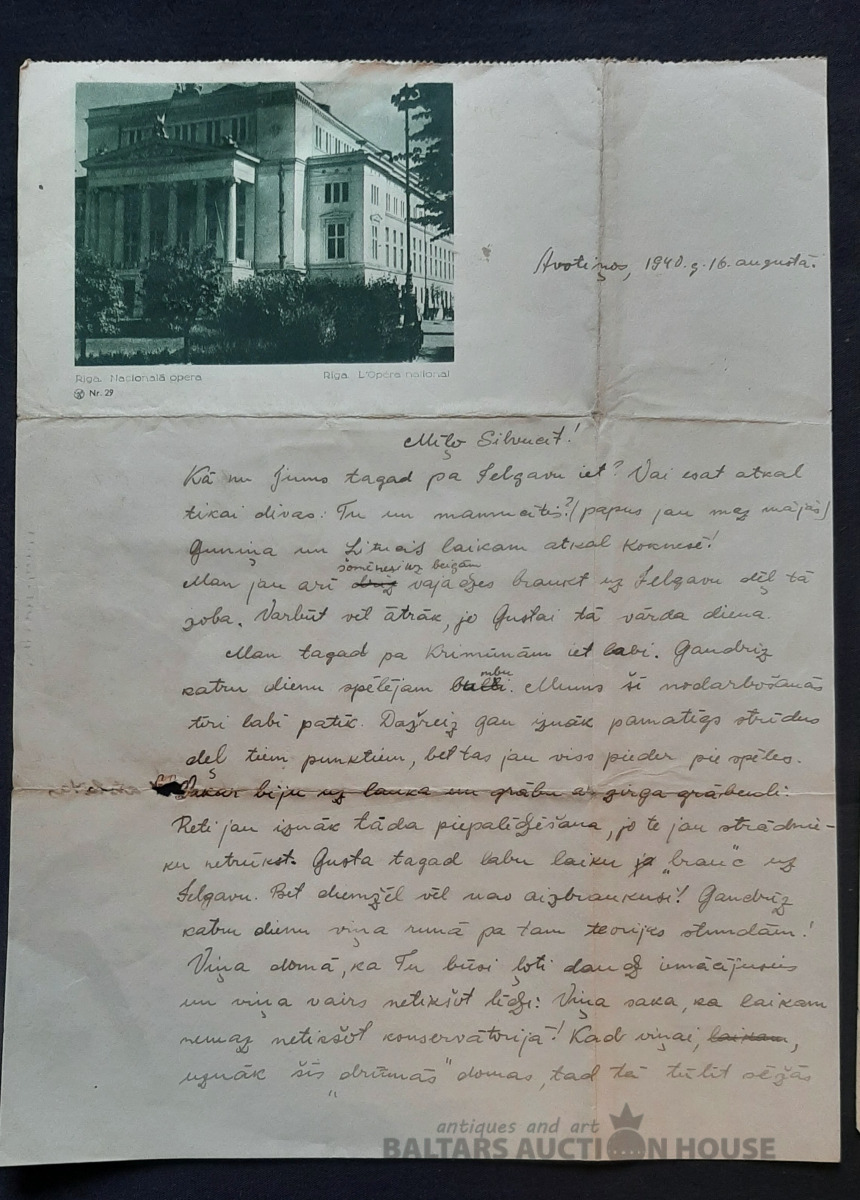 Rīga. Nacionalā opera
Rīga. L'Opéra national
Nr. 29
Avotiņos, 1940. g. 16. augustā.
Mīļo Silvucīt!
Kā nu Jums tagad pa Jelgavu iet? Vai esat atkal
tikai divas: Tu un mammucītis? (papus jau maz mājās)
Guniņa un laikam atkal Koknesē!
šomēnesi uz beigām
Man jau arī drīz vajadzēs braukt uz Jelgavu dēļ tā
zoba. Varbūt vēl ātrāk, jo Gustai tā vārda diena.
Man tagad pa Krimūnām iet labi. Gandrīz
katru dienu spēlējam. Mums šī nodarbošanās
tīri labi patīk. Dažreiz gan iznāk pamatīgs strīdus
dēļ tiem punktiem, bet tas jau viss pieder pie spēles.
Vakar biju uz lauka un grābu ar zirga grābekli.
Reti jau iznāk tāda piepalīdzēšana, jo te jau strādnie-
ku netrūkst. Gusta tagad labu laiku "brauc" uz
Jelgavu. Bet diemžēl vēl nav aizbraukusi! Gandrīz
katru dienu viņa runā pa tam teorijas stundām!
Viņa domā, ka Tu būsi ļoti daudz iemācījusies
un viņa vairs netikšot līdz: Viņa saka, ka laikam
nemaz netikšot konservātorijā! Kad viņai, laikam,
uznāk šīs "drūmās" domas, tad tā tūlīt sēžās
antiques and art
BALTARS AUCTION HOUSE